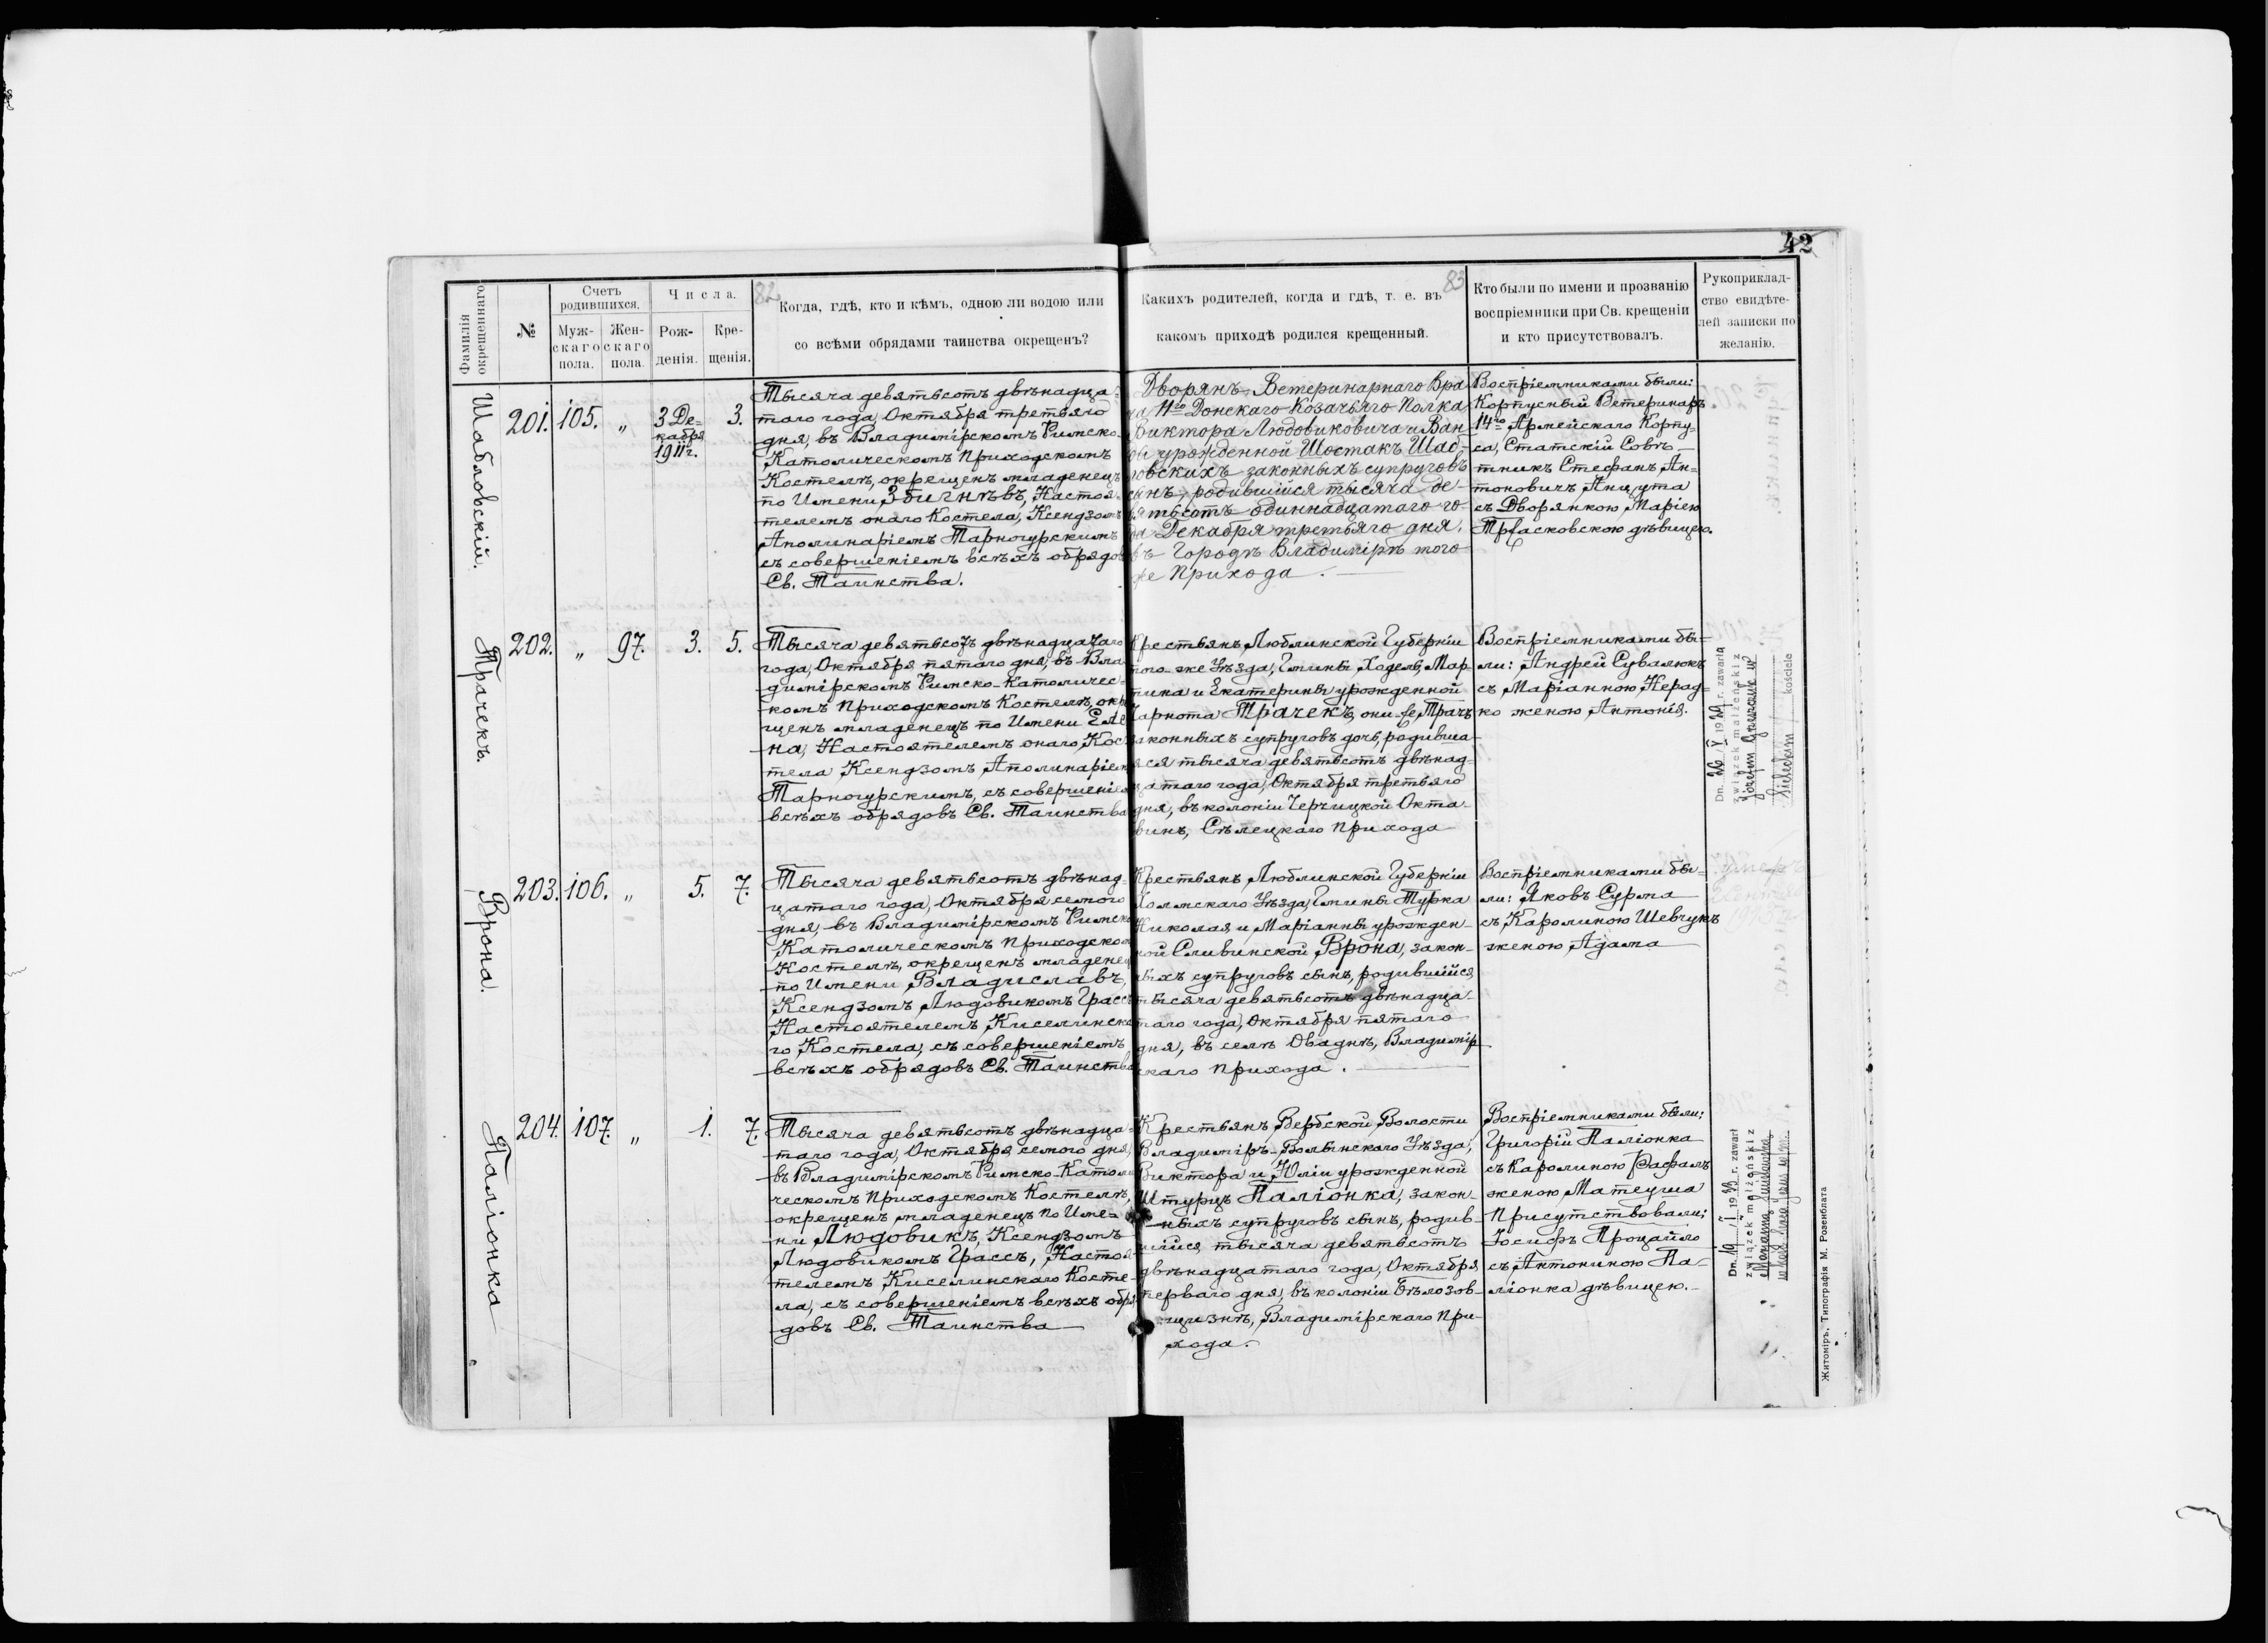 42
82
83
Фамилія окрещеннаго
№
Счетъ родившихся.
Мужскаго пола.
Женскаго пола.
Числа.
Рожденія.
Крещенія.
Когда, гдѣ, кто и кѣмъ, одною ли водою или
со всѣми обрядами таинства окрещенъ?
Какихъ родителей, когда и гдѣ, т. е. въ
какомъ приходѣ родился крещенный.
Кто были по имени и прозванію
воспріемники при Св. крещеніи
и кто присутствовалъ.
Рукоприклад-
ство свидѣте-
лей записки по
желанію.
Шабловскій.
201. 105. „ 3 Де=
кабря
1911 г.
3.
Тысяча девятьсотъ двѣнадца-
таго года, Октября третьяго
дня, въ Владимірскомъ Римско-
Католическомъ Приходскомъ
Костелѣ, окрещенъ младенецъ
по Имени Збигнѣвъ, Настоя-
телемъ онаго Костела, Ксендзомъ
Аполинаріемъ Тарногурскимъ
съ совершеніемъ всѣхъ обрядовъ
Св. Таинства.
Дворянъ Ветеринарнаго Вра
ча 11го Донскаго Козачьяго Полка
Виктора Людовиковича и Ван
ды урожденной Шостакъ Шаб-
ловскихъ законныхъ супруговъ
сынъ, родившійся тысяча де-
вятьсотъ одиннадцатаго го-
да Декабря третьяго дня,
въ Городѣ Владимірѣ того-
же Прихода.
Воспріемниками были:
Корпусный Ветеринаръ
14го Армейскаго Корпу-
са, Статскій Совѣ-
тникъ Стефанъ Ан=
тоновичъ Анцута
съ Дворянкою Маріею
дѣвицею.
Трачекъ.
202. „ 97. 3. 5.
Тысяча девятьсотъ двѣнадцатаго
года, Октября пятаго дня, въ Вла
димірскомъ Римско-Католичес-
комъ Приходскомъ Костелѣ, окре
щенъ младенецъ по Имени Еле
на, Настоятелемъ онаго Кос
тела Ксендзомъ Аполинаріемъ
Тарногурскимъ, съ совершеніемъ
всѣхъ обрядовъ Св. Таинства
Крестьянъ, Люблинской Губерніи
того-же Уѣзда, Гмины Ходель, Мар
тина и Екатерины урожденной
Чарнота Трачекъ, они-же Трачъ
законныхъ супруговъ дочь, родивша-
яся тысяча девятьсотъ двѣнад-
цатаго года, Октября третьяго
дня, въ колоніи Черчицкой Окта-
винъ, Сѣлецкаго Прихода
Воспріемниками бы=
ли: Андрей Сувалюкъ
съ Маріанною Нерад-
ко женою Антонія.
Dn. 26/V 1929 r. zawarła
związek małżeński z
kościele
Врона.
203. 106. „ 5. 7.
Тысяча девятьсотъ двѣнад-
цатаго года, Октября семого
дня, въ Владимірскомъ Римско
Католическомъ Приходском
Костелѣ, окрещенъ младенец
по Имени Владиславъ,
Ксендзомъ Людовикомъ Грассъ
Настоятелемъ Киселинска
го Костела, съ совершеніемъ
всѣхъ обрядовъ Св. Таинства
Крестьянъ, Люблинской Губерніи
Холмскаго Уѣзда, Гмины Турка
Николая и Маріанны урожден-
ной Сливинской Врона, закон-
ныхъ супруговъ сынъ, родившійся
тысяча девятьсотъ двѣнадца-
таго года, Октября пятаго
дня, въ селѣ Оваднѣ, Владимір
скаго Прихода.
Воспріемниками бы-
ли: Яковъ Сурма
съ Каролиною Шевчукъ
женою Адама
Паліонка
204. 107. „ 1. 7.
Тысяча девятьсотъ двѣнадца-
таго года, Октября семого дня,
въ Владимірскомъ Римско-Католи
ческомъ Приходскомъ Костелѣ,
окрещенъ младенецъ по Име=
ни Людовикъ, Ксендзомъ
Людовикомъ Грассъ, Настоя
телемъ Киселинскаго Косте-
ла, съ совершеніемъ всѣхъ обря
довъ Св. Таинства
Крестьянъ Вербской Волости
Владиміръ-Волынскаго Уѣзда,
Виктора и Юліи урожденной
Штурцъ Паліонка, закон-
ныхъ супруговъ сынъ, родив-
шійся тысяча девятьсотъ
двѣнадцатаго года, Октября
перваго дня, въ колоніи Бѣлозов-
щизнѣ, Владимірскаго При-
хода.
Воспріемниками были:
Григорій Паліонка
съ Каролиною Рафалъ
женою Матеуша
Присутствовали:
Іосифъ Процайло
съ Антониною Па-
ліонка дѣвицею.
Dn. 19/I 1939 r. zawarł
związek małżeński z
Житоміръ, Типографія М. Розенблата